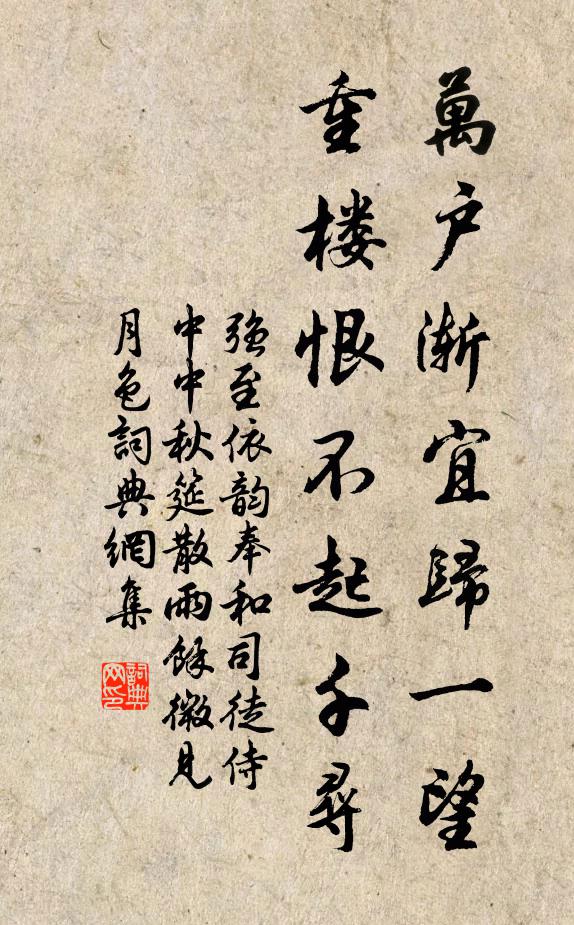 萬户漸宜歸一望
重楼恨不起千尋
強至依韵奉和司徒侍
中中秋筵散雨餘微見
月色詞典網集
詞典网印